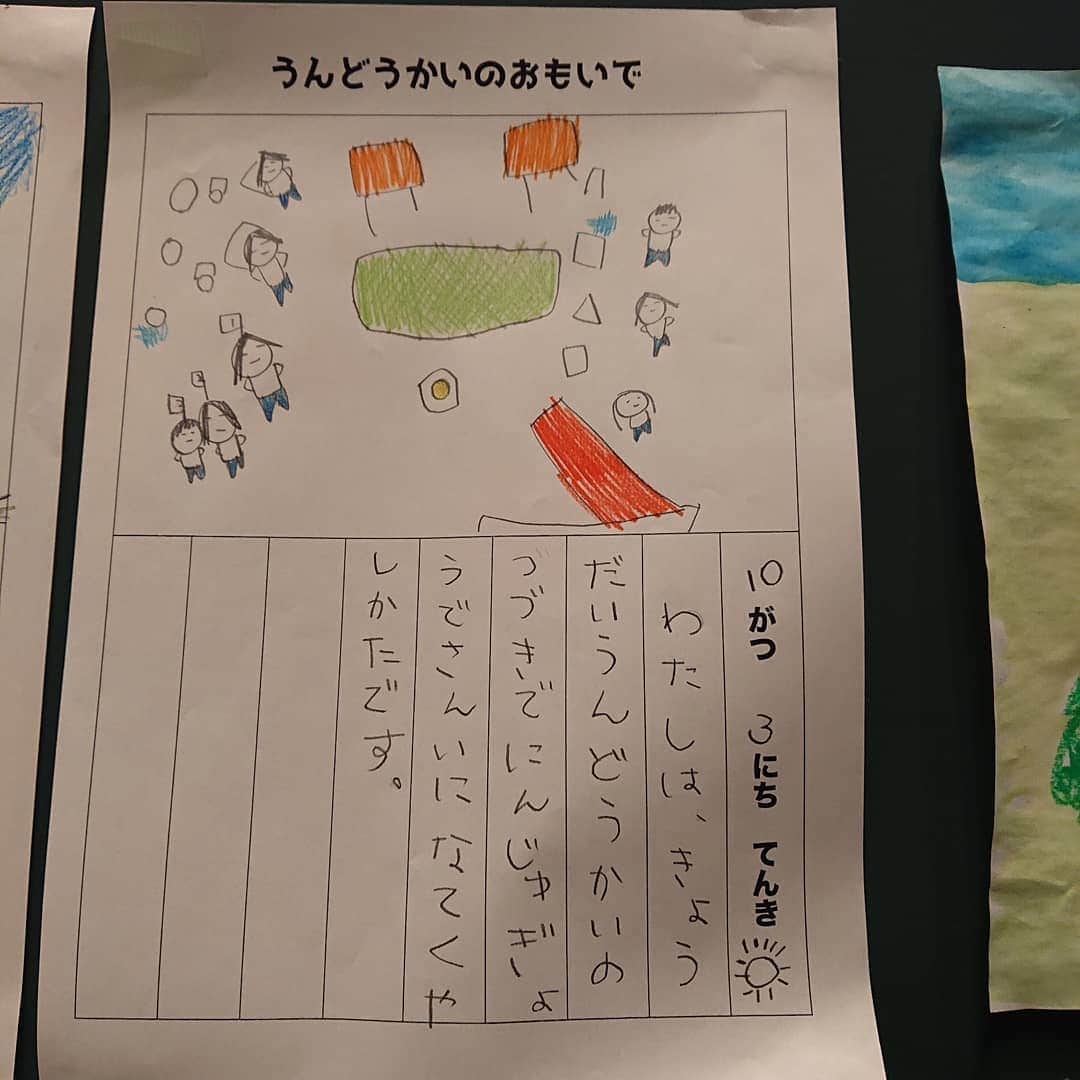 うんどうかいのおもいで
10がつ 3にち てんき
わたしは、きょう
だいうんどうかいの
つづきでにんじゅぎょ
うでさんいになてくや
しかたです。
1
2
3